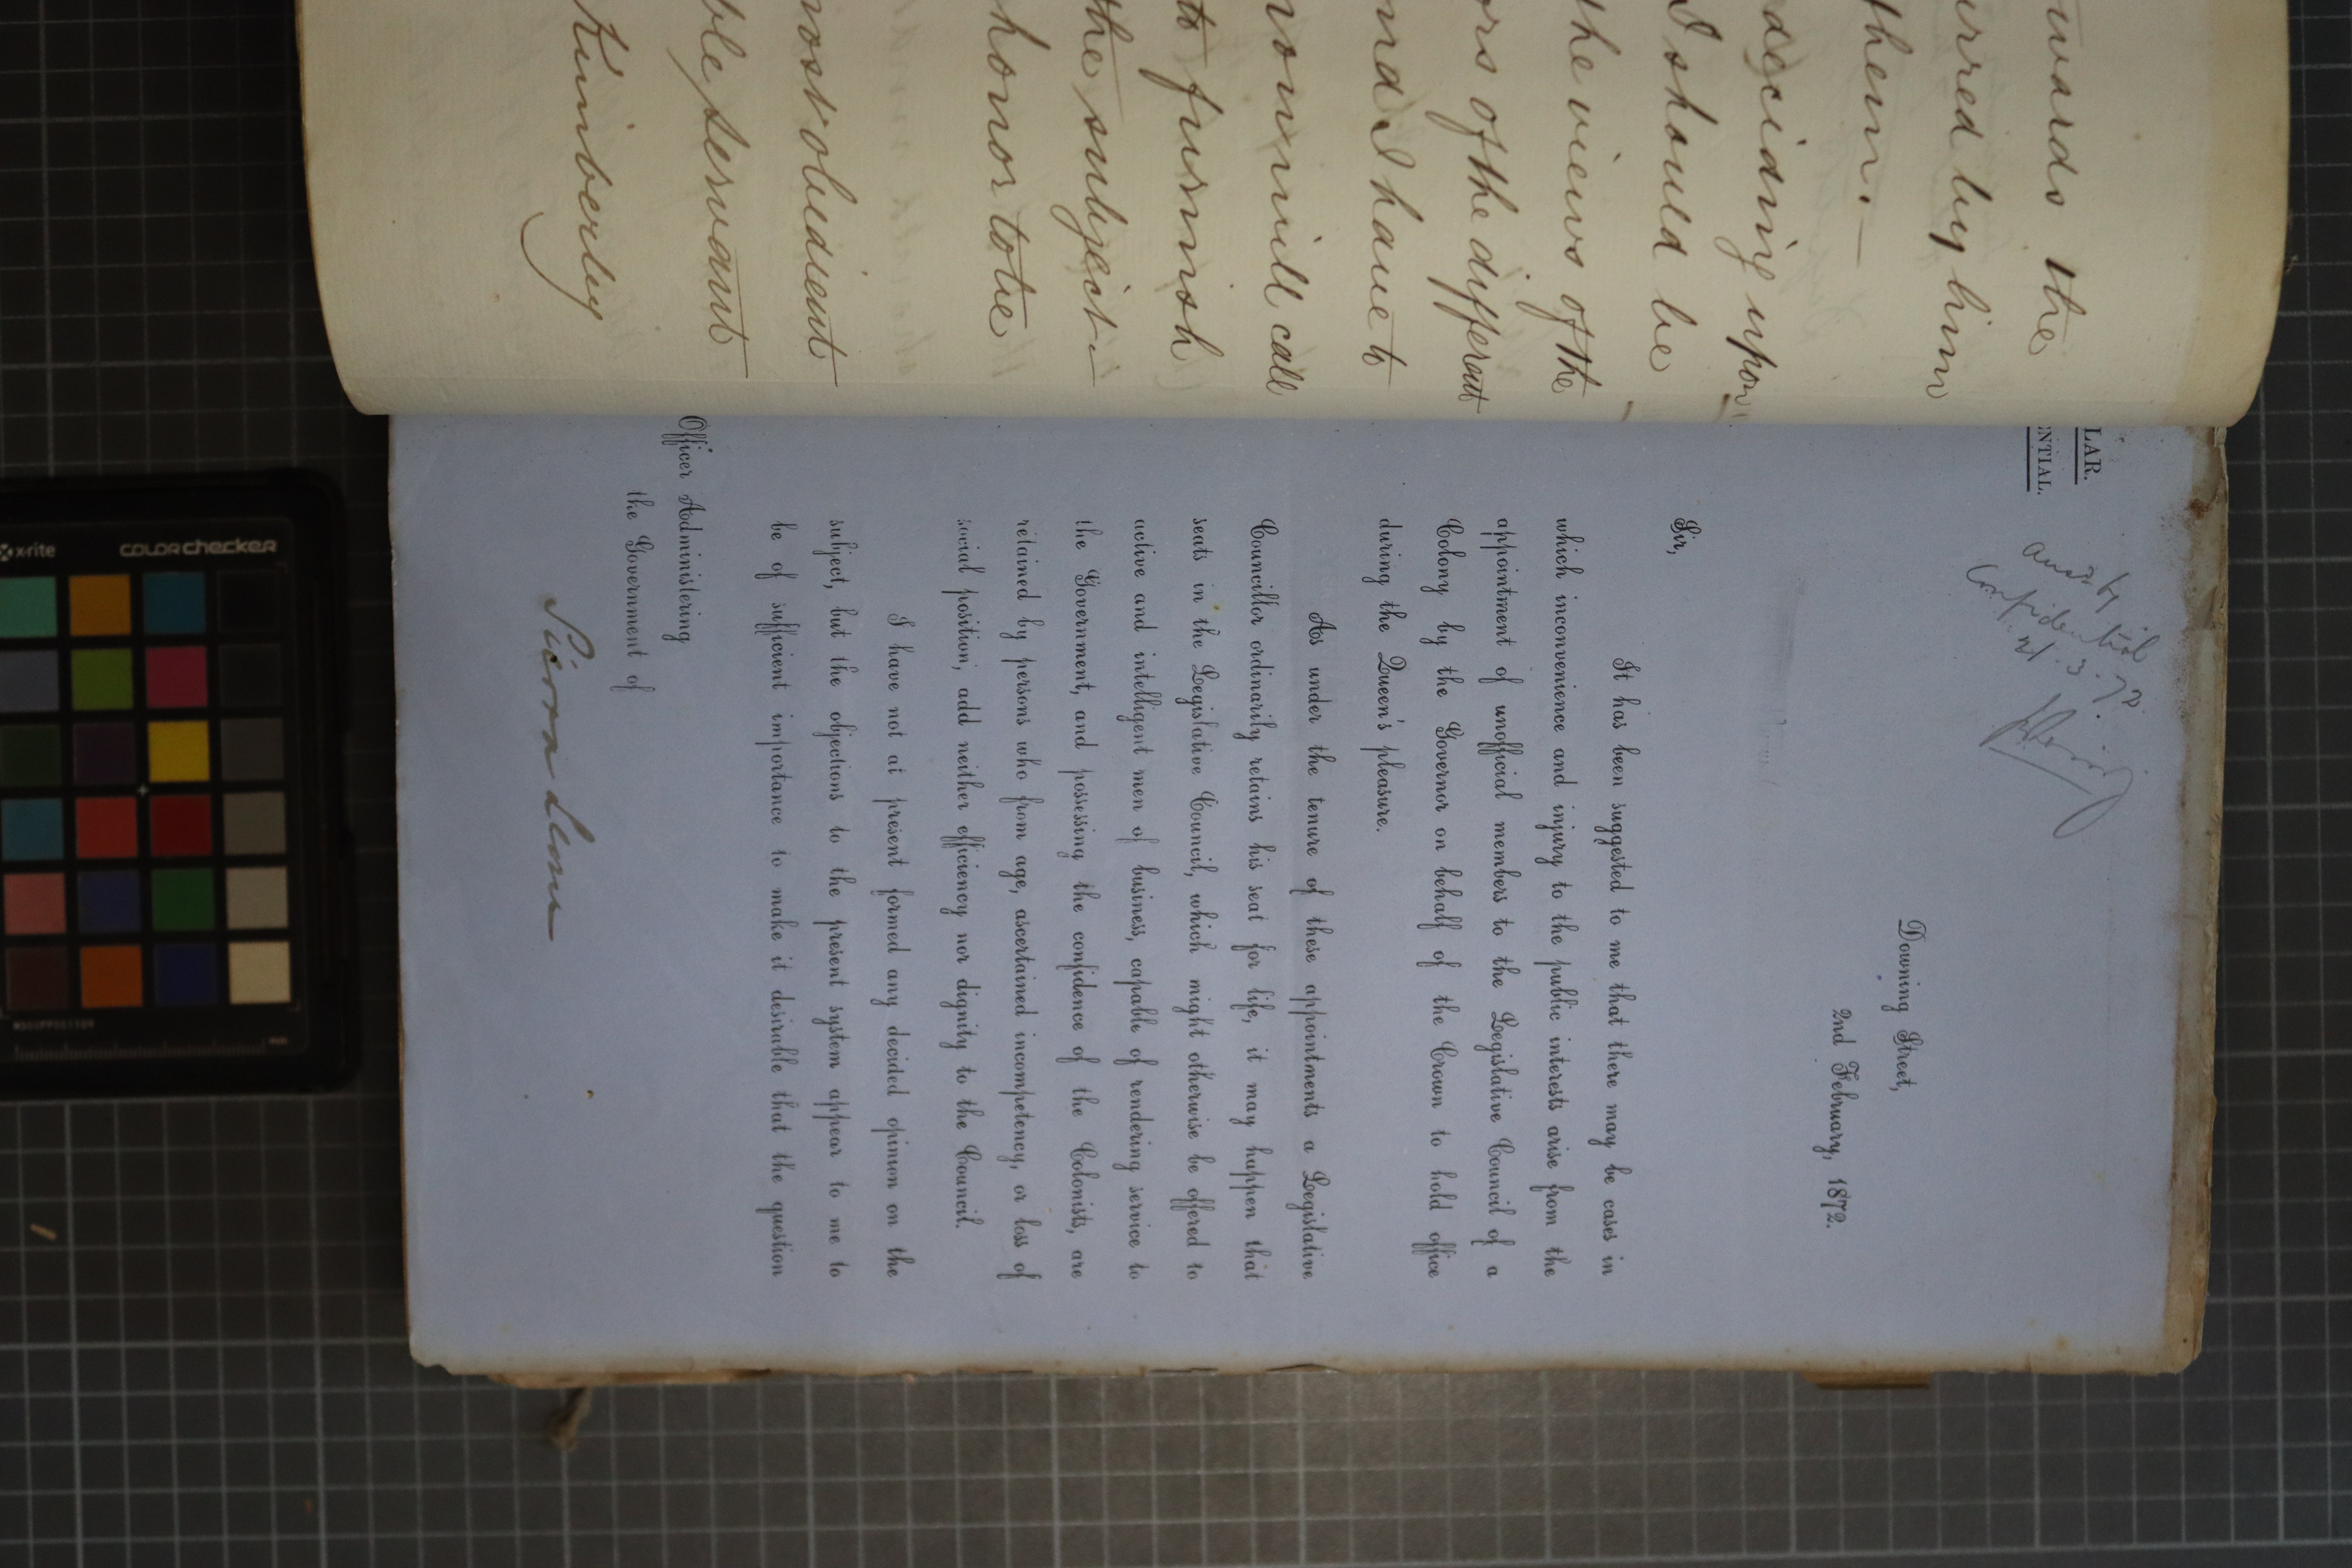 wards the
irred by him
them. —
deciding upon
I should be
the views of the
ors of the different
and I have to
you will call
to furnish
the subject. —
honor to be
most obedient
ble servant
Kimberley
LAR.
NTIAL.
Confidential
21.3.72.
Downing Street,
2nd February, 1872.
Sir,
It has been suggested to me that there may be cases in
which inconvenience and injury to the public interests arise from the
appointment of unofficial members to the Legislative Council of a
Colony by the Governor on behalf of the Crown to hold office
during the Queen's pleasure.
As under the tenure of these appointments a Legislative
Councillor ordinarily retains his seat for life, it may happen that
seats in the Legislative Council, which might otherwise be offered to
active and intelligent men of business, capable of rendering service to
the Government, and possessing the confidence of the Colonists, are
retained by persons who from age, ascertained incompetency, or loss of
social position, add neither efficiency nor dignity to the Council.
I have not at present formed any decided opinion on the
subject, but the objections to the present system appear to me to
be of sufficient importance to make it desirable that the question
Officer Administering
the Government of
Sierra Leone
x-rite
colorchecker